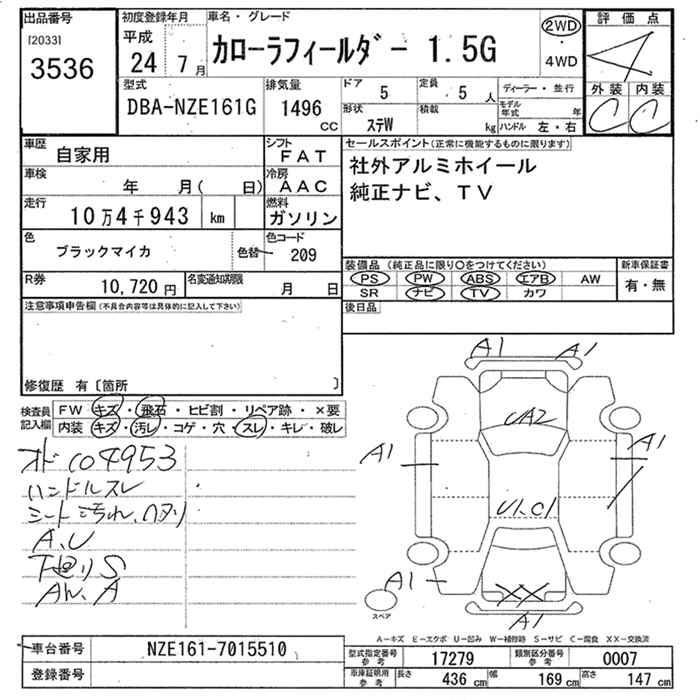 出品番号
[2033]
3536
初度登録年月
平成
24 7 月
車名・グレード
カローラフィールダー 1.5G
2WD
・
4WD
評価点
4
外装 内装
C C
型式
DBA-NZE161G
排気量
1496
cc
ドア
5
定員
5 人
ディーラー・並行
形状
ステW
積載
kg
モデル年式 年
ハンドル 左・右
車歴
自家用
シフト
FAT
車検
年 月( 日)
冷房
AAC
走行
10万4千943 km
燃料
ガソリン
色
ブラックマイカ
色替
色コード
209
R券
10,720 円
名変通知期限
月 日
セールスポイント(正常に機能するものに限ります)
社外アルミホイール
純正ナビ、TV
装備品 (純正品に限り○をつけてください)
PS PW ABS エアB AW
SR ナビ TV カワ
新車保証書
有・無
後日品
注意事項申告欄(不具合内容等は具体的に記入して下さい)
修復歴 有〔箇所 〕
検査員
記入欄
FW キズ・飛石・ヒビ割・リペア跡・×要
内装 キズ・汚レ・コゲ・穴・スレ・キレ・破レ
オド104953
ハンドルスレ
シート汚れ、ヘタリ
A、U
下廻りS
AW、A
A1
A1
UA2
A1
A1
U1、C1
A1
XX
A1
スペア
A-キズ E-エクボ U-凹み W-補修跡 S-サビ C-腐食 XX-交換済
車台番号
NZE161-7015510
登録番号
型式指定番号
参考
17279
類別区分番号
参考
0007
車庫証明用
参考
長さ
436 cm
幅
169 cm
高さ
147 cm